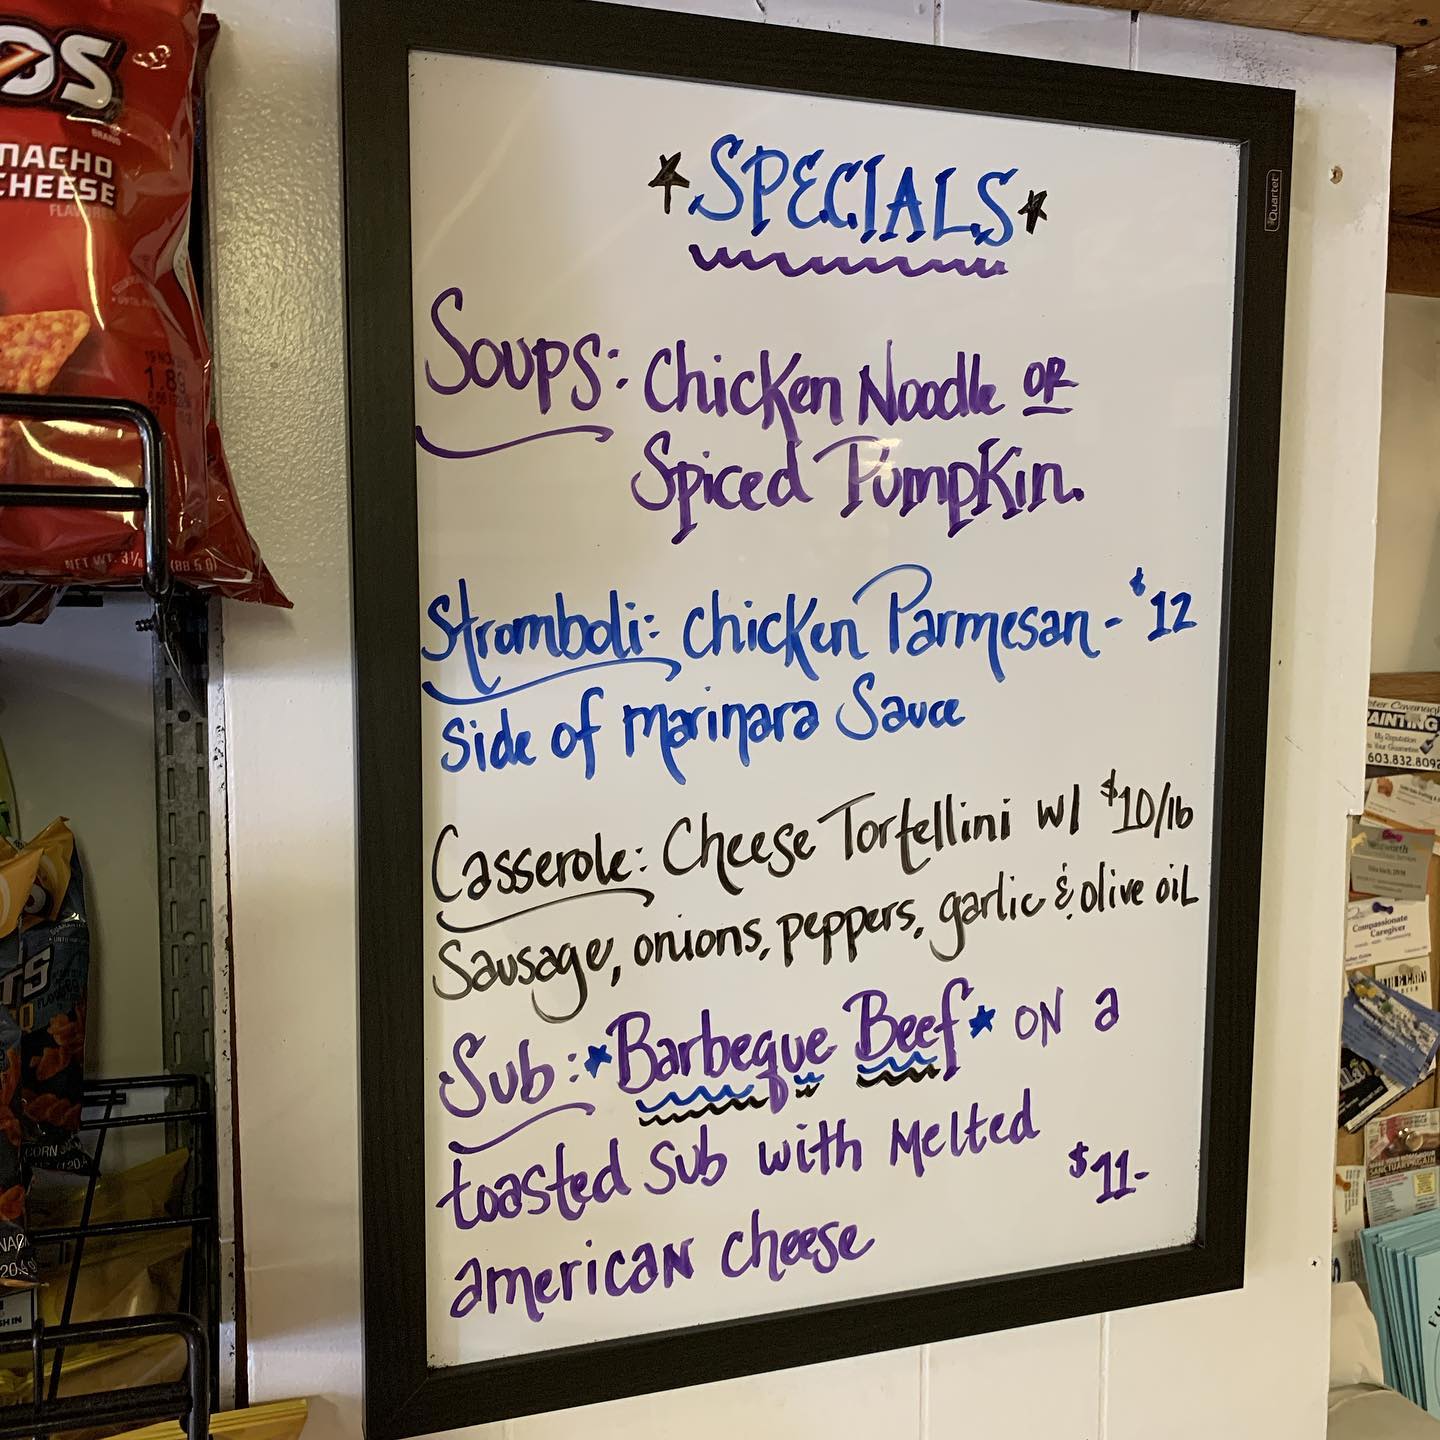 *SPECIALS*
Soups: Chicken Noodle OR
Spiced Pumpkin.
Stromboli: Chicken Parmesan - $12
side of marinara Sauce
Casserole: Cheese Tortellini w/ $10/lb
Sausage, onions, peppers, garlic & olive oil
Sub: *Barbeque Beef* ON a
toasted sub with Melted
$11-
american cheese
Quartet
OS
NACHO
CHEESE
NET WT. 3 (88.5 G)
1.89
TS
CORN
PAINTING
My Reputation
Is Your Guarantee
603.832.8092
Compassionate
Caregiver